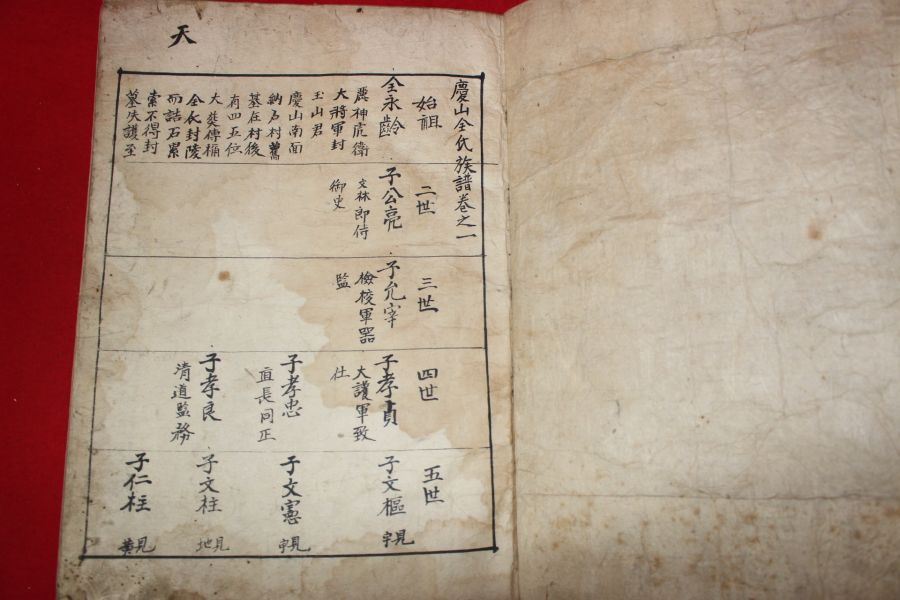 天
慶山全氏族譜卷之一
始祖
全永齡
麗神虎衛
大將軍封
玉山君
慶山南面
納石村舊
基在村後
有四五位
大葬傳稱
全氏封陵
而誌石累
索不得封
墓失護至
二世
子公亮
文林郎侍
御史
三世
子允宰
檢校軍器
監
四世
子孝貞
大護軍致
仕
子孝忠
直長同正
子孝良
清道監務
五世
子文樞
見宇
子文憲
見宇
子文柱
見地
子仁柱
見黃